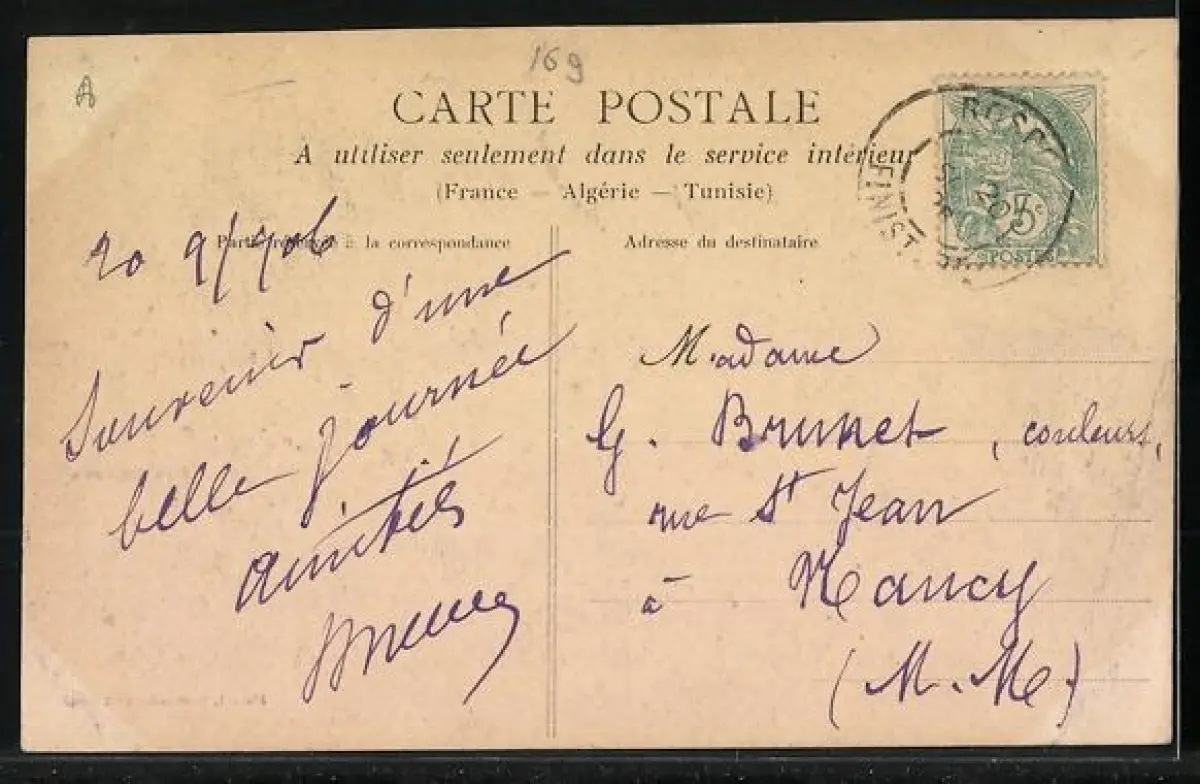 169
A
CARTE POSTALE
A utiliser seulement dans le service intérieur
(France — Algérie — Tunisie)
Partie réservée à la correspondance
Adresse du destinataire
FINIST
5c
POSTES
20 9/906
Souvenir d'une
belle journée
amitiés
Madame
G. Brunet, couleurs,
rue St Jean
à Nancy
(M. Me)